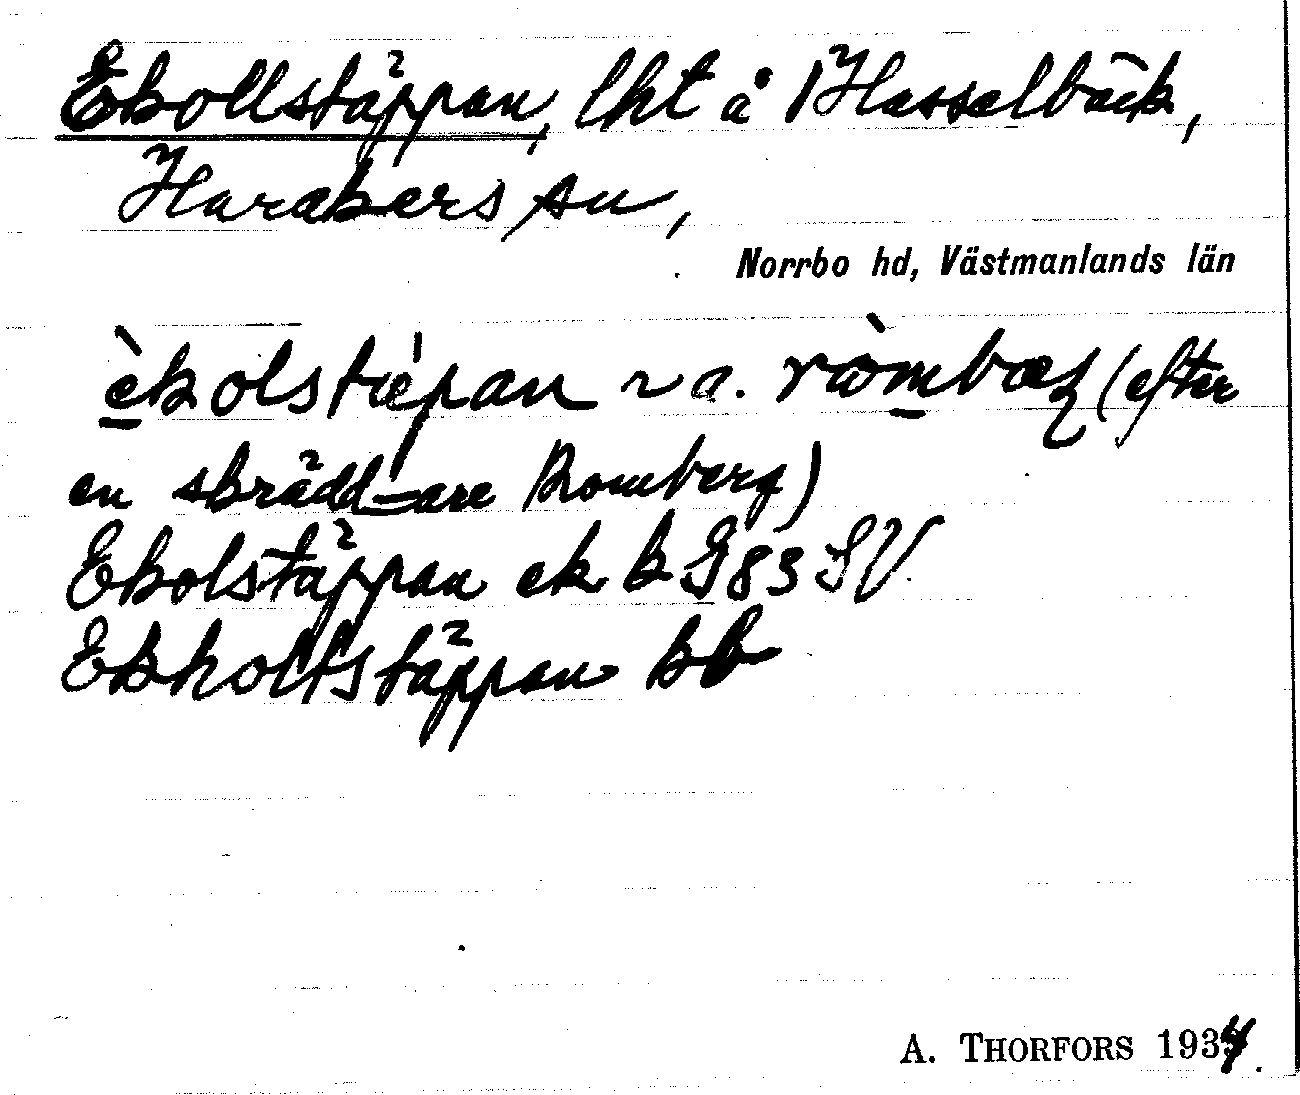 Ekollstäppan, lht å Hasselbäck,
Harakers sn,
Norrbo hd, Västmanlands län
èkolstæpan ~ a. ròmbæɽ (efter
en skräddare Romberg)
Ekolstäppan ek k G83 SV
Ekholtstäppan kb
A. THORFORS 1934.